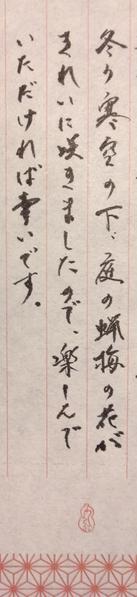 冬の寒空の下、庭の蝋梅の花が
きれいに咲きましたので、楽しんで
いただければ幸いです。